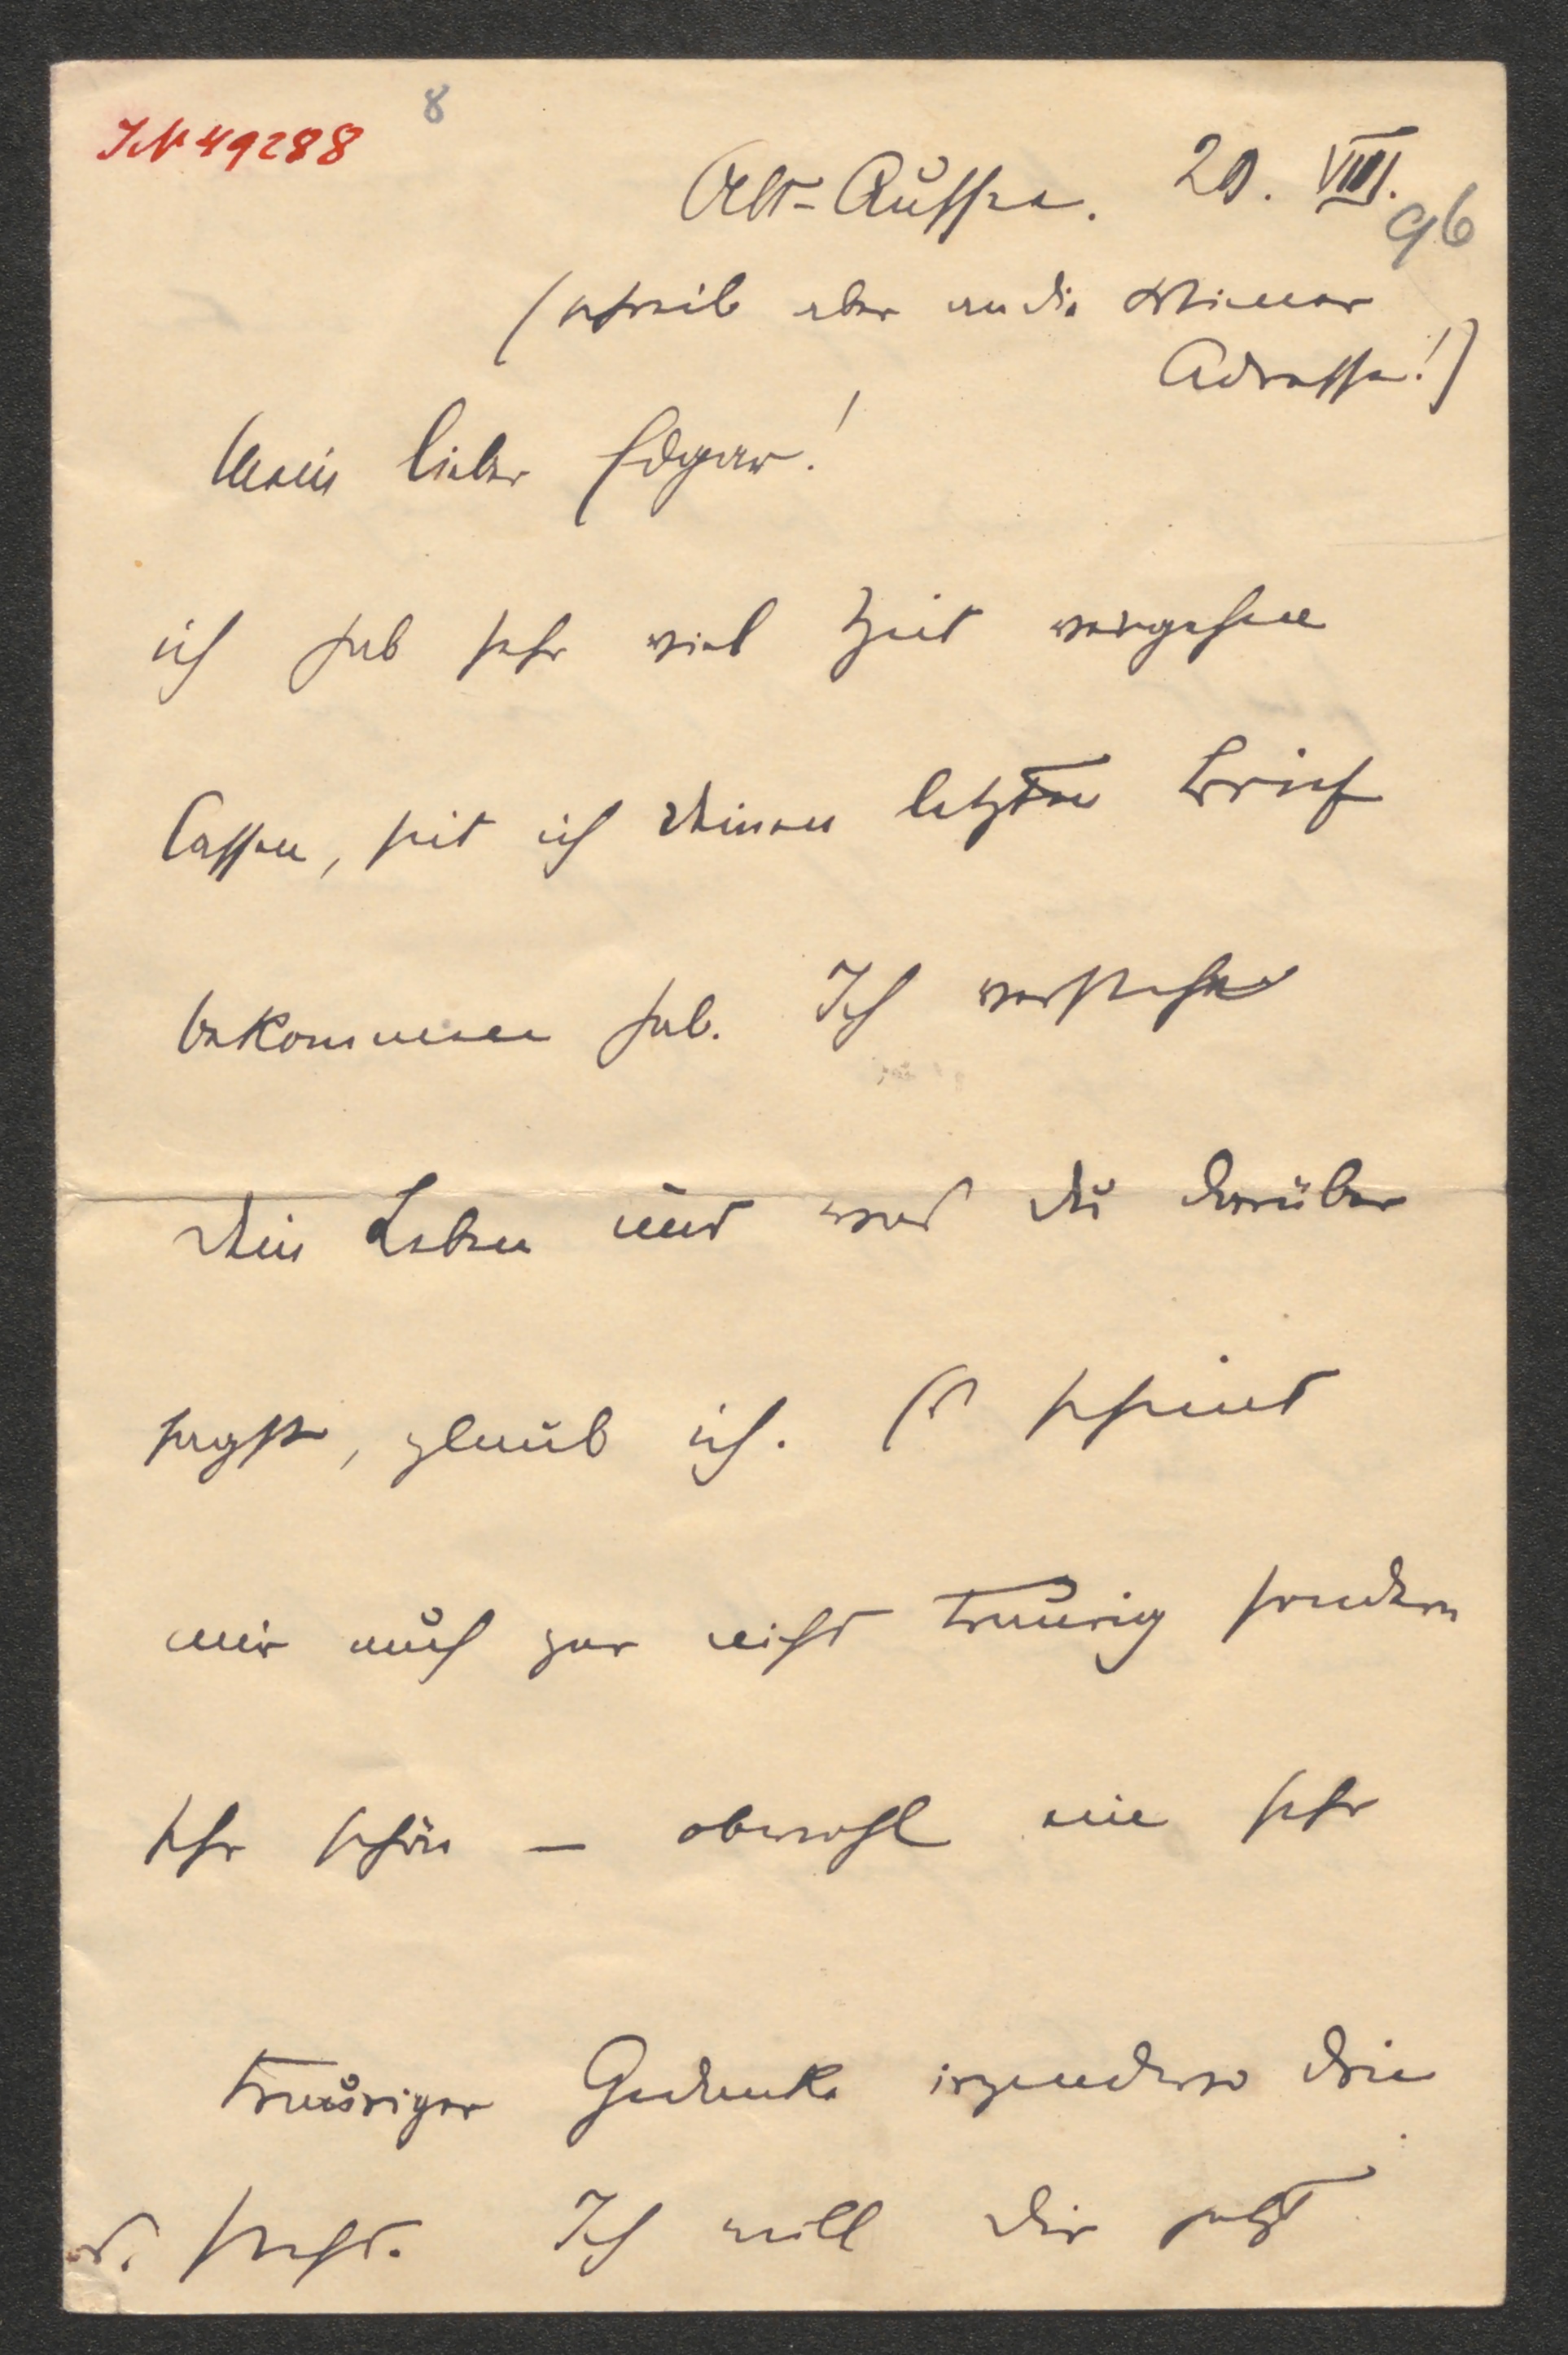 IN 49288 8
Alt-Aussee. 20. VIII.
96
(schreib aber an die Wiener
Adresse!)
Mein lieber Edgar!
ich hab sehr viel Zeit vergehen
lassen, seit ich Deinen letzten Brief
bekommen hab. Ich verstehe
Dein Leben und was Du darüber
sagst, glaub ich. Es scheint
mir auch gar nicht traurig sondern
sehr schön – obwohl ein sehr
trauriger Gedanke irgendwo drin
steht. Ich will Dir jetzt